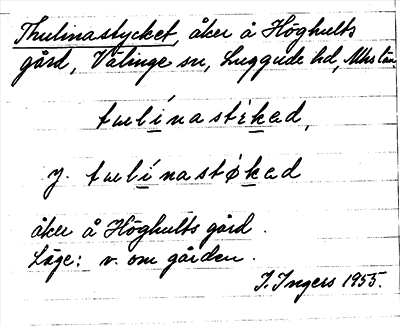 Thulinastycket, åker å Höghults
gård, Välinge sn, Luggude hd, Mhs län.
tɯlínastèkad,
y. tɯlínastøkad
åker å Höghults gård.
Läge: v. om gården.
I. Ingers 1955.